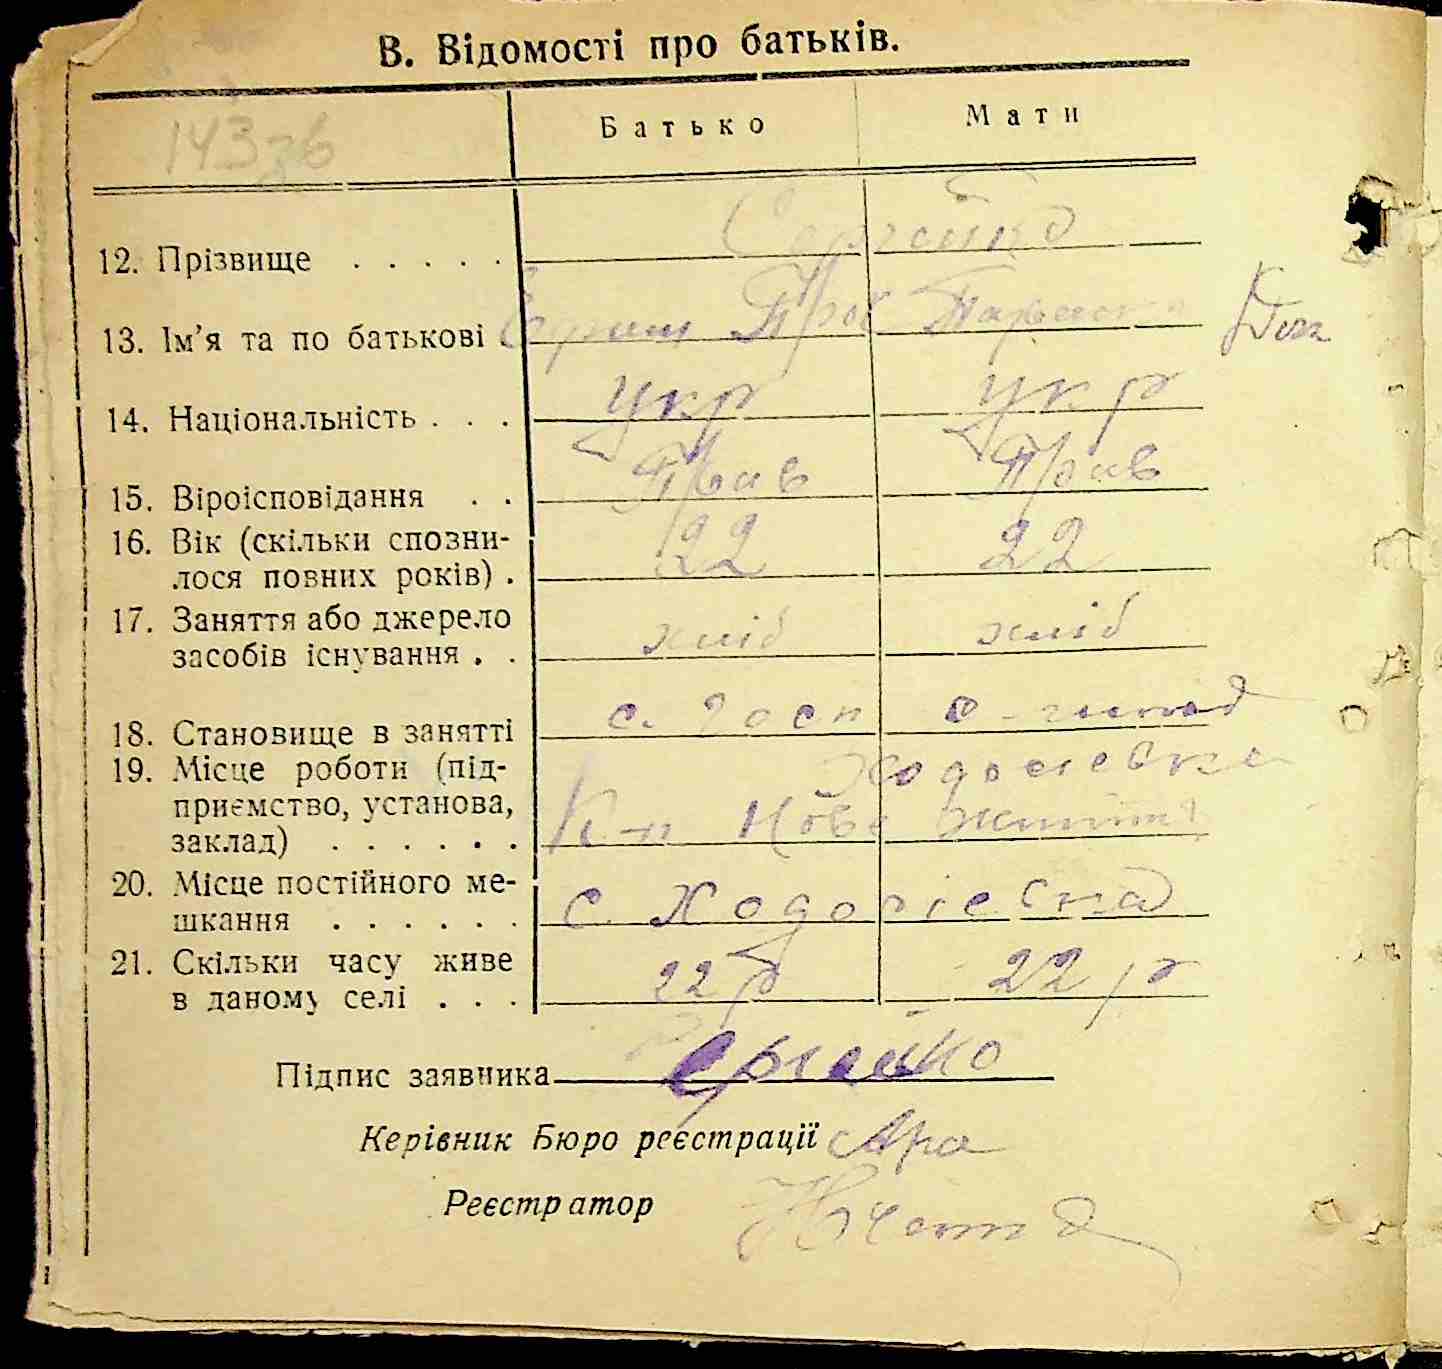 В. Відомості про батьків.
143зв
Батько Мати
12. Прізвище . . . . . Сергейко
13. Ім'я та по батькові . Ефрем Прок Параска Дем
14. Національність . . . укр укр
15. Віроісповідання . . Прав Прав
16. Вік (скільки спозни-
лося повних років) . 22 22
17. Заняття або джерело
засобів існування . . хліб хліб
18. Становище в занятті с. госп
19. Місце роботи (під-
приємство, установа,
заклад) . . . . . . К-п Нове життя
20. Місце постійного ме-
шкання . . . . . . с. Ходосіевка
21. Скільки часу живе
в даному селі . . . 22 р 22 р
Підпис заявника Сергейко
Керівник Бюро реєстрації
Реєстратор